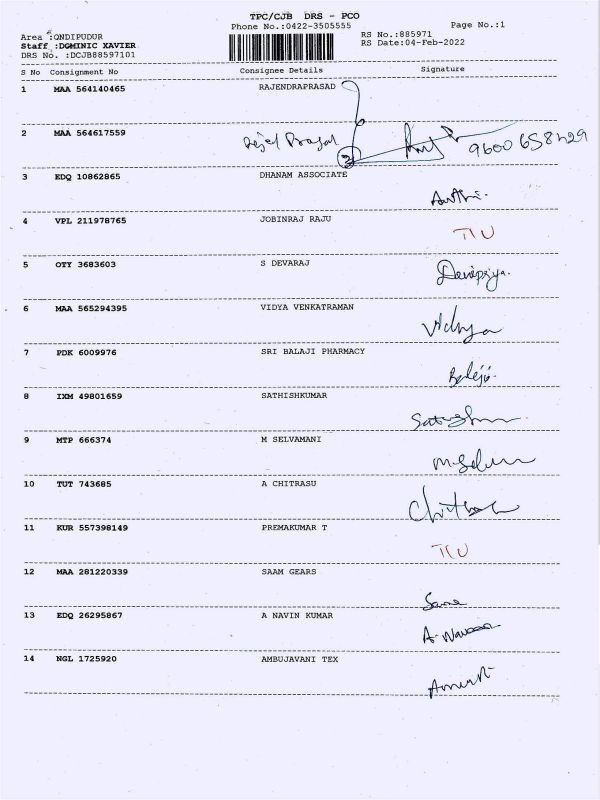 TPC/CJB DRS - PCO
Phone No.:0422-3505555 Page No.:1
Area :ONDIPUDUR RS No.:885971
Staff :DOMINIC XAVIER RS Date:04-Feb-2022
DRS No. :DCJB88597101
S No Consignment No Consignee Details Signature
1 MAA 564140465 RAJENDRAPRASAD
2 MAA 564617559 9600658429
3 EDQ 10862865 DHANAM ASSOCIATE
4 VPL 211978765 JOBINRAJ RAJU
5 OTY 3683603 S DEVARAJ
Devipriya.
6 MAA 565294395 VIDYA VENKATRAMAN
Vidhya
7 PDK 6009976 SRI BALAJI PHARMACY
Balaji.
8 IXM 49801659 SATHISHKUMAR
9 MTP 666374 M SELVAMANI
10 TUT 743685 A CHITRASU
11 KUR 557398149 PREMAKUMAR T
12 MAA 281220339 SAAM GEARS
13 EDQ 26295867 A NAVIN KUMAR
14 NGL 1725920 AMBUJAVANI TEX